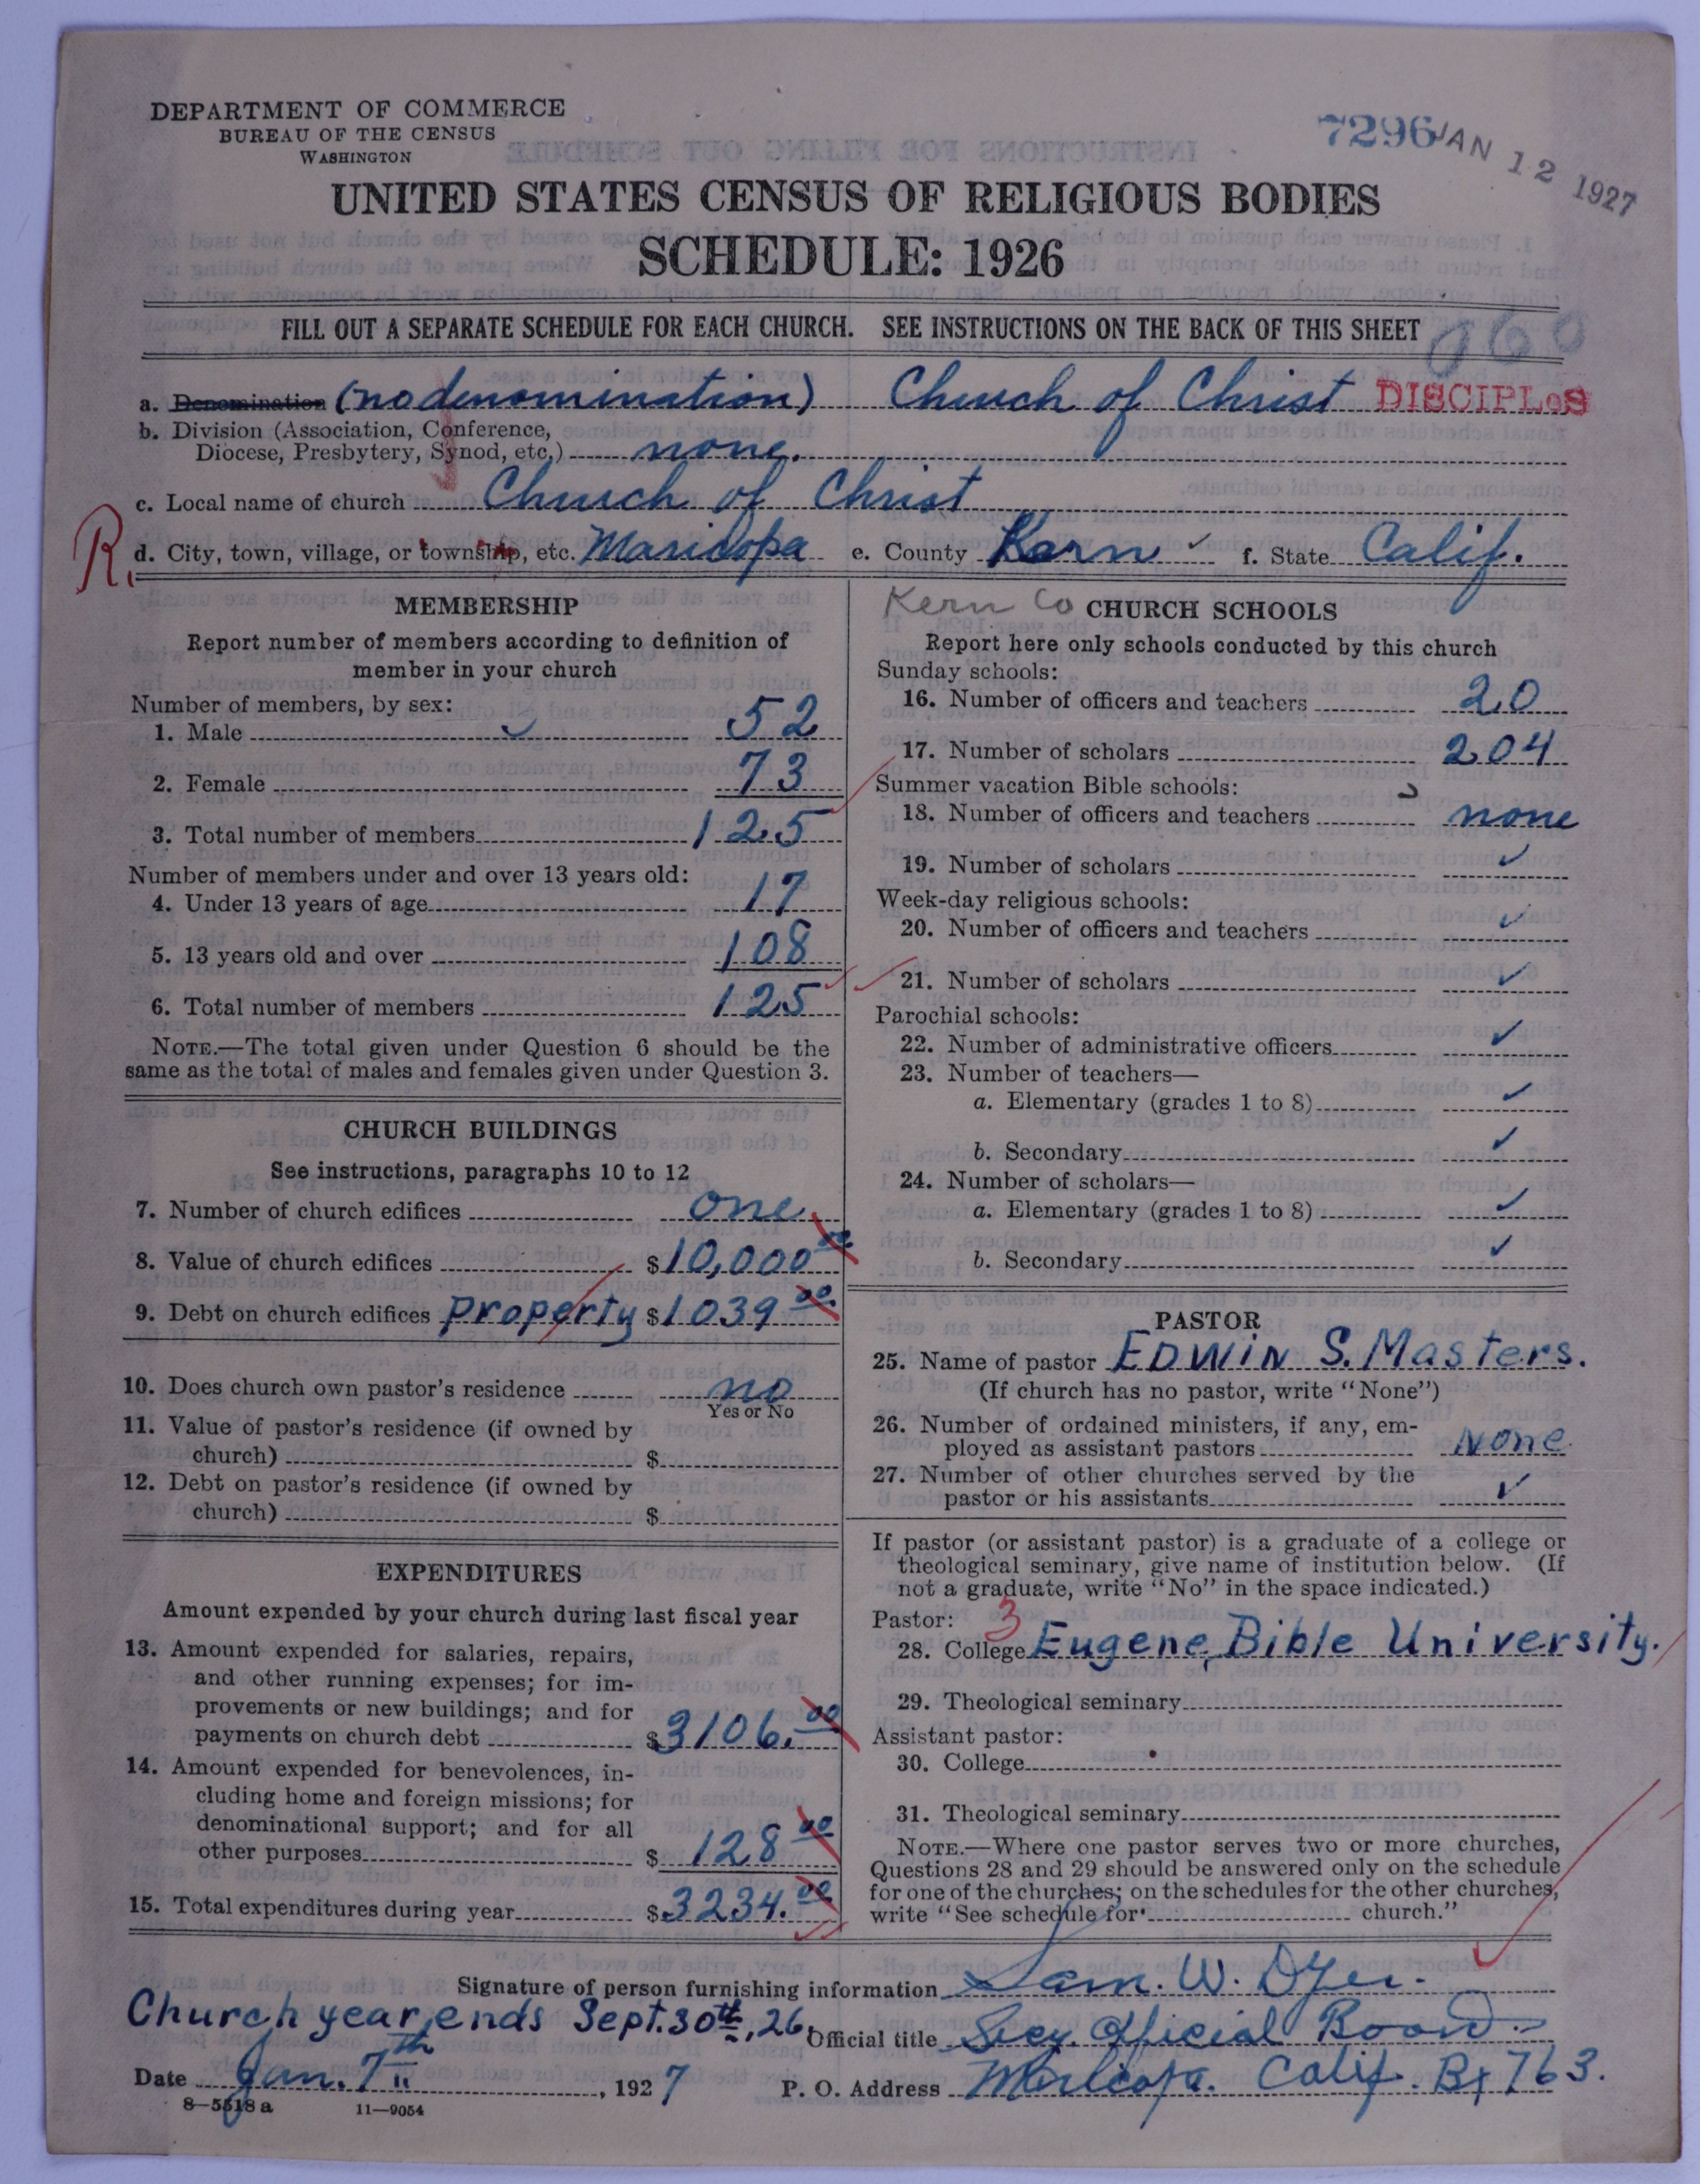 DEPARTMENT OF COMMERCE
BUREAU OF THE CENSUS
WASHINGTON
7296
JAN 12 1927
UNITED STATES CENSUS OF RELIGIOUS BODIES
SCHEDULE: 1926
FILL OUT A SEPARATE SCHEDULE FOR EACH CHURCH. SEE INSTRUCTIONS ON THE BACK OF THIS SHEET
060
a. Denomination (no denomination) Church of Christ DISCIPLeS
b. Division (Association, Conference,
Diocese, Presbytery, Synod, etc.) none.
c. Local name of church Church of Christ
R. d. City, town, village, or township, etc. Maricopa e. County Kern ✓ f. State Calif.
MEMBERSHIP
Report number of members according to definition of
member in your church
Number of members, by sex:
1. Male 52
2. Female 73
3. Total number of members 125
Number of members under and over 13 years old:
4. Under 13 years of age 17
5. 13 years old and over 108
6. Total number of members 125
NOTE.—The total given under Question 6 should be the
same as the total of males and females given under Question 3.
CHURCH BUILDINGS
See instructions, paragraphs 10 to 12
7. Number of church edifices one
8. Value of church edifices $10,000 00
9. Debt on church edifices property $1039 00
10. Does church own pastor's residence no
Yes or No
11. Value of pastor's residence (if owned by
church) $
12. Debt on pastor's residence (if owned by
church) $
EXPENDITURES
Amount expended by your church during last fiscal year
13. Amount expended for salaries, repairs,
and other running expenses; for im-
provements or new buildings; and for
payments on church debt $3106.00
14. Amount expended for benevolences, in-
cluding home and foreign missions; for
denominational support; and for all
other purposes $128 00
15. Total expenditures during year $3234.00
Kern Co CHURCH SCHOOLS
Report here only schools conducted by this church
Sunday schools:
16. Number of officers and teachers 20
17. Number of scholars 204
Summer vacation Bible schools:
18. Number of officers and teachers none
19. Number of scholars ✓
Week-day religious schools:
20. Number of officers and teachers ✓
21. Number of scholars ✓
Parochial schools:
22. Number of administrative officers ✓
23. Number of teachers—
a. Elementary (grades 1 to 8) ✓
b. Secondary ✓
24. Number of scholars—
a. Elementary (grades 1 to 8) ✓
b. Secondary ✓
PASTOR
25. Name of pastor EDWIN S. Masters.
(If church has no pastor, write "None")
26. Number of ordained ministers, if any, em-
ployed as assistant pastors None
27. Number of other churches served by the
pastor or his assistants ✓
If pastor (or assistant pastor) is a graduate of a college or
theological seminary, give name of institution below. (If
not a graduate, write "No" in the space indicated.)
Pastor: 3
28. College Eugene, Bible University.
29. Theological seminary
Assistant pastor:
30. College
31. Theological seminary
NOTE.—Where one pastor serves two or more churches,
Questions 28 and 29 should be answered only on the schedule
for one of the churches; on the schedules for the other churches,
write "See schedule for church."
Signature of person furnishing information Sam. W. Dyer.
Church year ends Sept. 30th, 26.
Official title Secy. Official Board.
Date Jan. 7th, 1927
P. O. Address Maricopa. Calif. Bx 763.
8—5518 a 11—9054